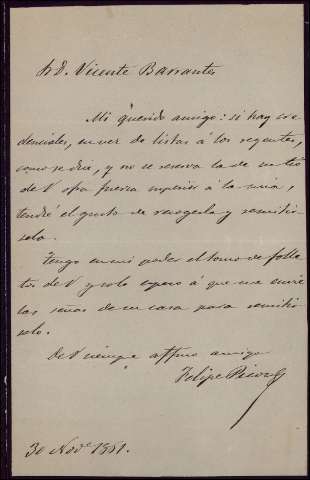 Sr. D. Vicente Barrantes
Mi querido amigo: si hay cre
denciales, en vez de listas á los regentes,
como se dice, y no se reserva la de
de V otra fuerza superior á la mia,
tendré el gusto de recogerla y remitir
sela.
Tengo en mi poder el tomo de folle
tos de V y solo espero á que me envie
las señas de su casa para remitir
selo.
De V siempre affmo amigo
Felipe Picon
30 Nove 1881.